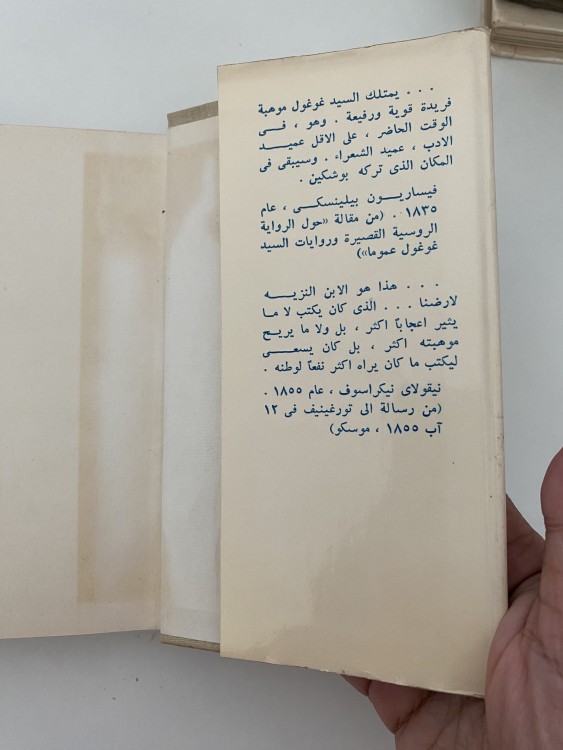 . . . يمتلك السيد غوغول موهبة
فريدة قوية ورفيعة . وهو ، فـــى
الوقت الحاضر ، على الاقل عميـــد
الادب ، عميد الشعراء . وسيبقى فى
المكان الذى تركه بوشكين .
فيساريـــون بيلينسكـــى ، عام
١٨٣٥ . (من مقالة «حول الرواية
الروسية القصيرة وروايات السيد
غوغول عموما»)
. . . هذا هو الابن النزيـــه
لارضنا . . . الذى كان يكتب لا ما
يثير اعجاباً اكثر ، بل ولا ما يريـــح
موهبته اكثر ، بل كان يسعـــى
ليكتب ما كان يراه اكثر نفعاً لوطنه .
نيقولاى نيكراسوف ، عام ١٨٥٥ .
(من رسالة الى تورغينيف فى ١٢
آب ١٨٥٥ ، موسكو)